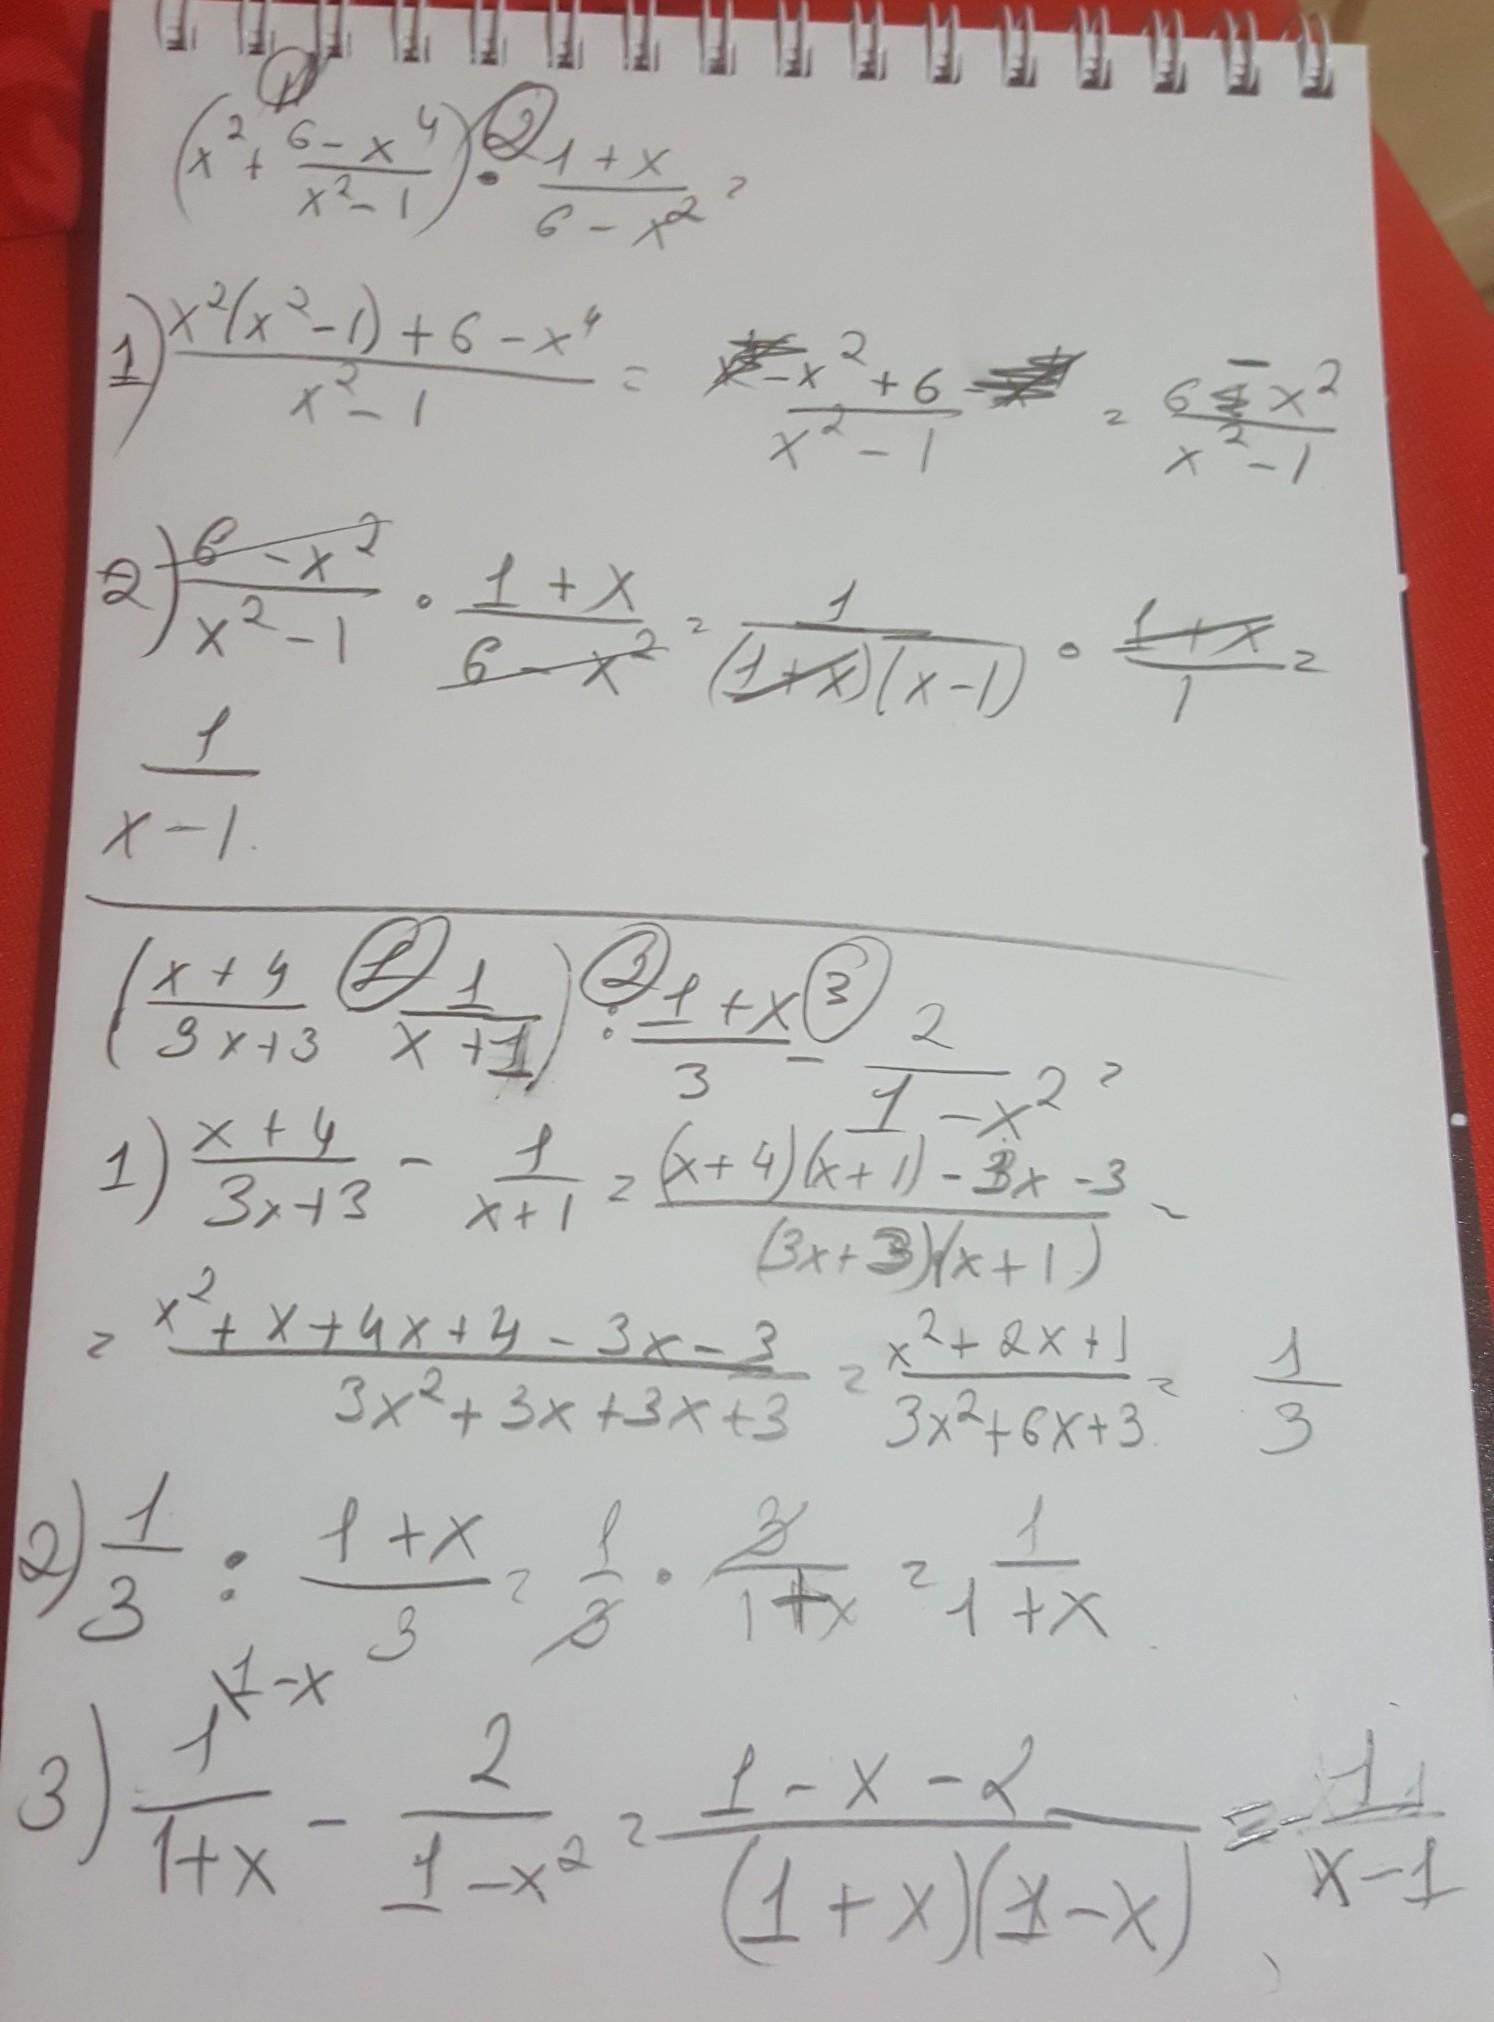 (x² + (6 - x⁴)/(x² - 1)) · (1 + x)/(6 - x²) =
1) (x²(x² - 1) + 6 - x⁴)/(x² - 1) = (-x² + 6)/(x² - 1) = (6 - x²)/(x² - 1)
2) (6 - x²)/(x² - 1) · (1 + x)/(6 - x²) = 1/((1 + x)(x - 1)) · (1 + x)/1 =
1/(x - 1).
((x + 4)/(3x + 3) - 1/(x + 1)) : (1 + x)/3 - 2/(1 - x²) =
1) (x + 4)/(3x + 3) - 1/(x + 1) = ((x + 4)(x + 1) - 3x - 3)/((3x + 3)(x + 1)) =
= (x² + x + 4x + 4 - 3x - 3)/(3x² + 3x + 3x + 3) = (x² + 2x + 1)/(3x² + 6x + 3) = 1/3
2) 1/3 : (1 + x)/3 = 1/3 · 3/(1 + x) = 1/(1 + x)
1 - x
3) 1/(1 + x) - 2/(1 - x²) = (1 - x - 2)/((1 + x)(1 - x)) =